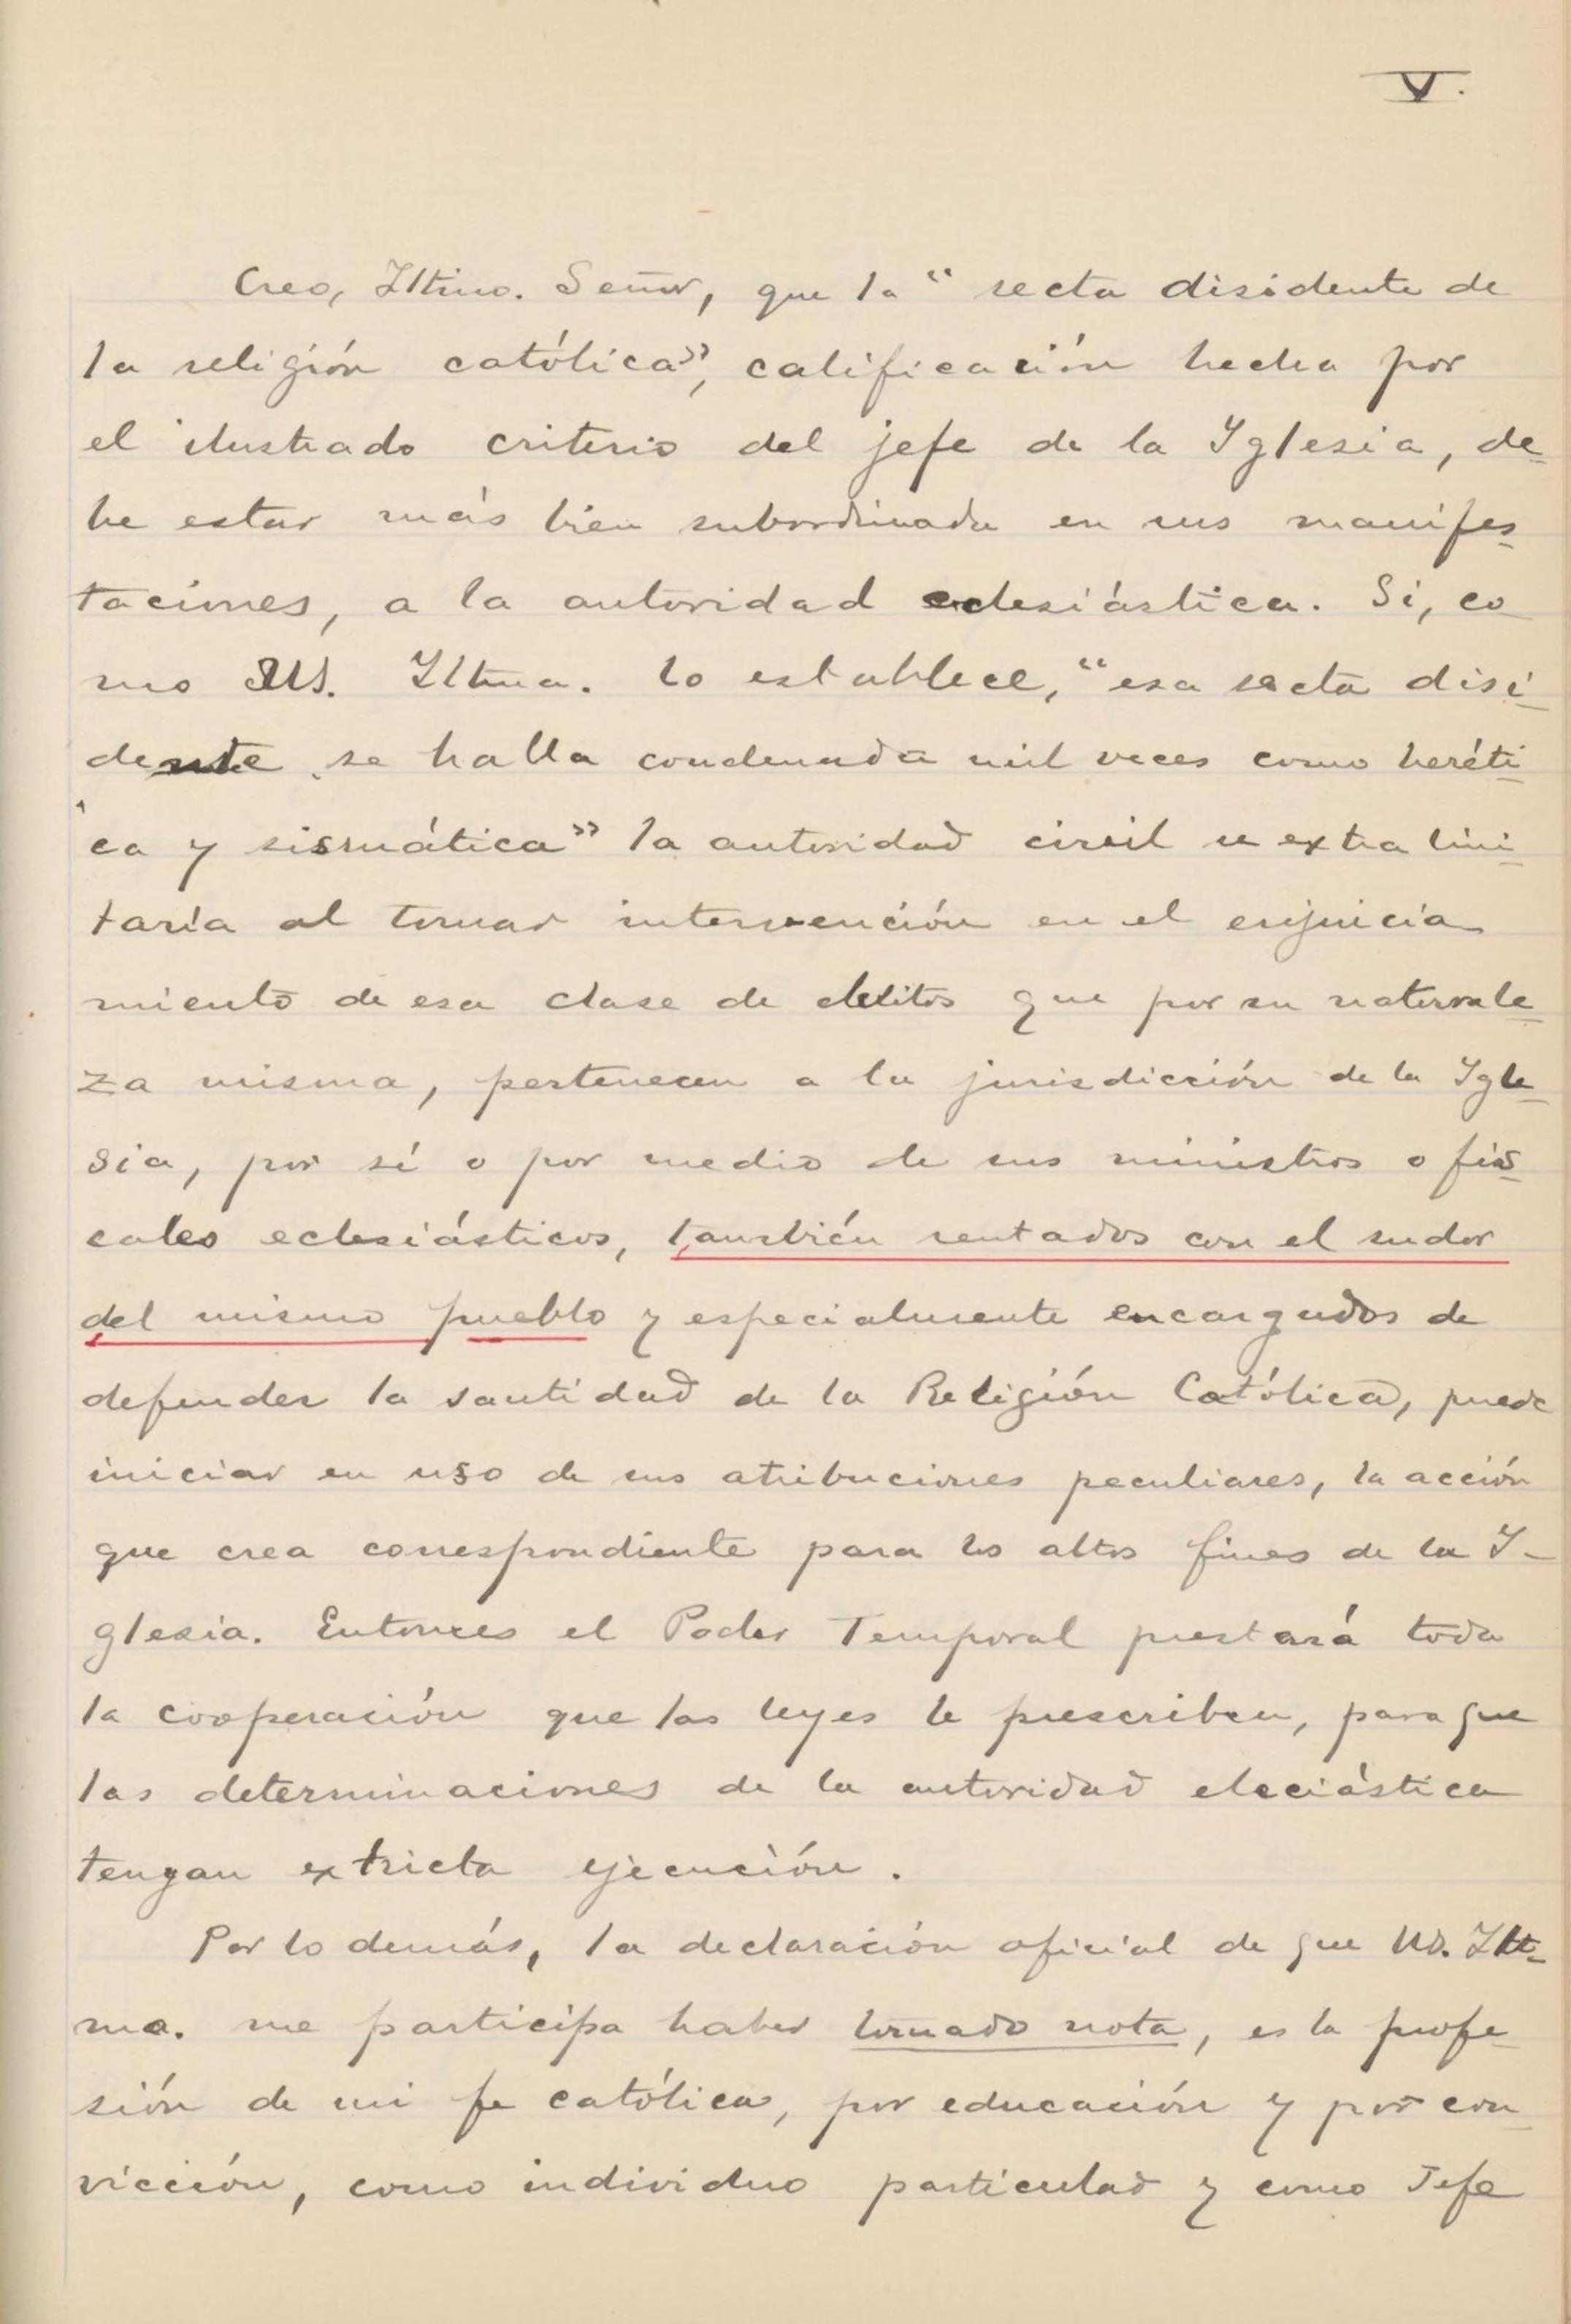 V.
Creo, Iltmo. Señor, que la "secta disidente de
la religión católica", calificación hecha por
el ilustrado criterio del jefe de la Yglesia, de-
be estar más bien subordinada en sus manifes-
taciones, a la autoridad eclesiástica. Si, co-
mo US. Iltma. lo establece, "esa secta disi-
dente se halla condenada mil veces como heréti-
ca y sismática" la autoridad civil se extra limi-
taría al tomar intervención en el enjuicia-
miento de esa clase de delitos que por su naturale-
za misma, pertenecen a la jurisdicción de la Ygle-
sia, por sí o por medio de sus ministros o fis-
cales eclesiásticos, también rentados con el sudor
del mismo pueblo y especialmente encargados de
defender la santidad de la Religión Católica, puede
iniciar en uso de sus atribuciones peculiares, la acción
que crea correspondiente para los altos fines de la Y-
glesia. Entonces el Poder Temporal prestará toda
la cooperación que las leyes le prescriben, para que
las determinaciones de la autoridad eleciástica
tengan extricta ejecución.
Por lo demás, la declaración oficial de que US. Ilt-
ma. me participa haber tomado nota, es la profe-
sión de mi fe católica, por educación y por con-
vicción, como individuo particular y como Jefe